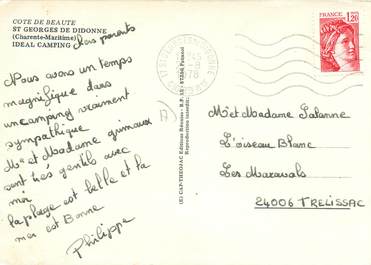 COTE DE BEAUTE
ST GEORGES DE DIDONNE
(Charente-Maritime)
IDEAL CAMPING
Chers parents
Nous avons un temps
magnifique dans
un camping vraiment
sympathique
Mr et Madame grimaux
sont très gentils avec
moi
la plage est belle et la
mer est Bonne
Philippe
(E) CAP-THEOJAC Edition Réunies - B.P. 13 - 87350, Panazol
Reproduction interdite.
FRANCE
1,20
Mr et Madame Lalanne
L'oiseau Blanc
Les Maravals
24006 TRELISSAC